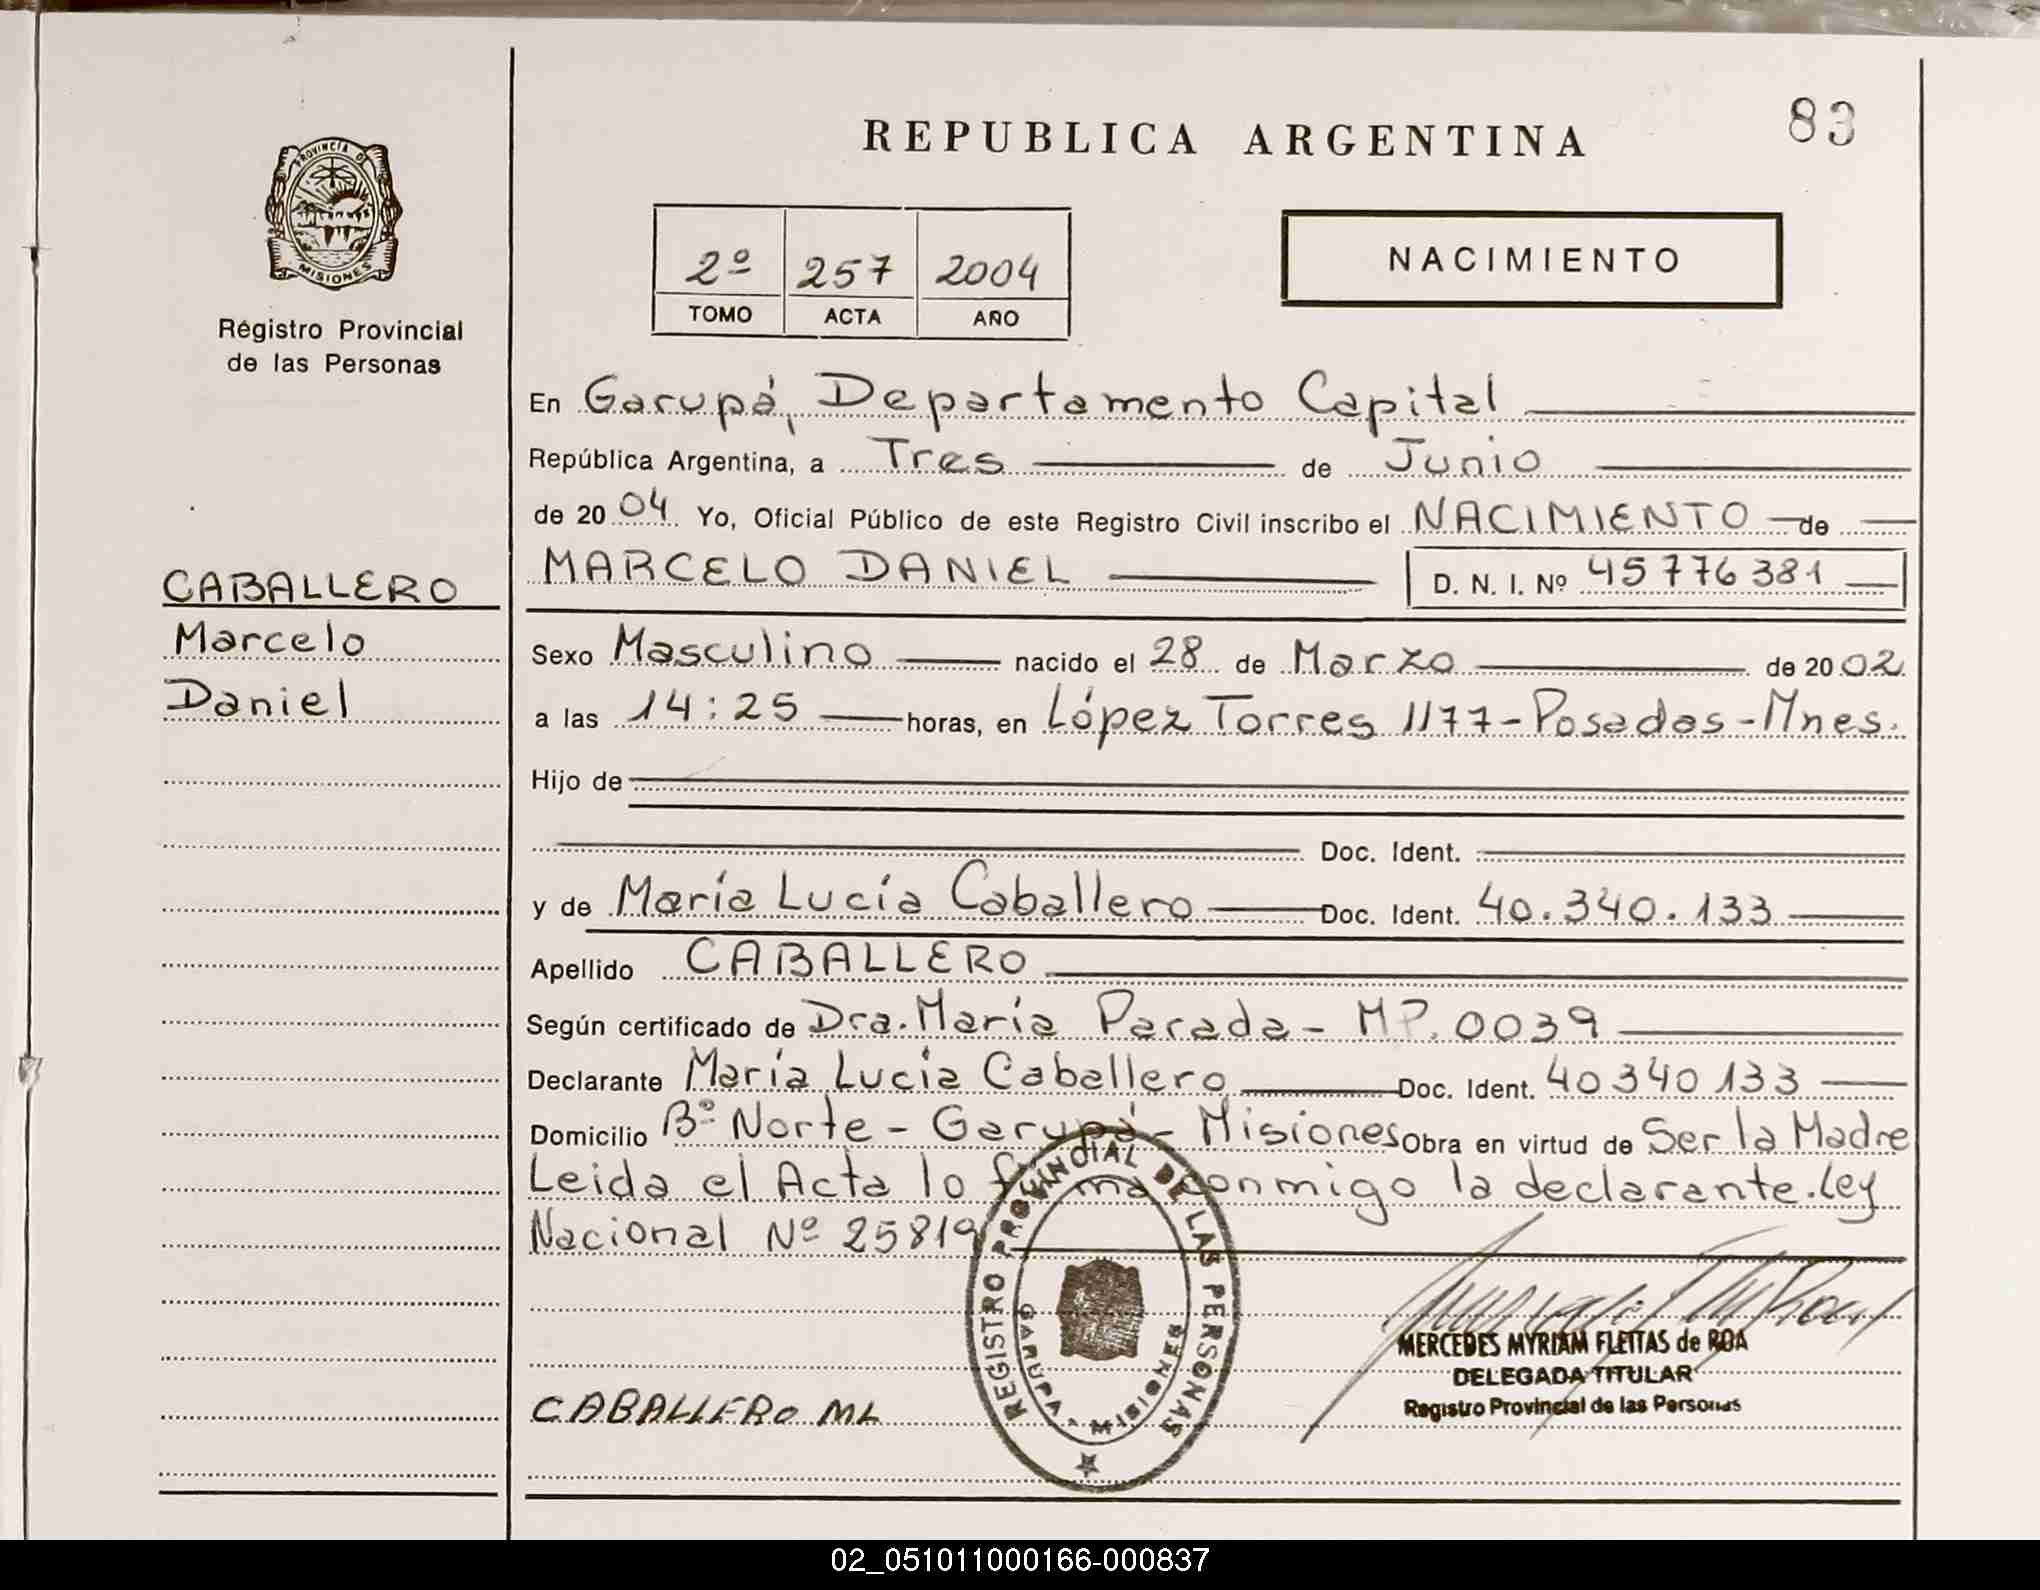 83
REPUBLICA ARGENTINA
PROVINCIA D
MISIONES
Registro Provincial
de las Personas
2º 257 2004
TOMO ACTA AÑO
NACIMIENTO
En Garupá, Departamento Capital
República Argentina, a Tres de Junio
de 2004 Yo, Oficial Público de este Registro Civil inscribo el NACIMIENTO de
MARCELO DANIEL D. N. I. Nº 45776381
CABALLERO
Marcelo
Daniel
Sexo Masculino nacido el 28 de Marzo de 2002
a las 14:25 horas, en López Torres 1177-Posadas-Mnes.
Hijo de
Doc. Ident.
y de María Lucía Caballero Doc. Ident. 40.340.133
Apellido CABALLERO
Según certificado de Dra. María Parada - MP. 0039
Declarante María Lucía Caballero Doc. Ident. 40340133
Domicilio Bº Norte - Garupá - Misiones Obra en virtud de Ser la Madre
Leida el Acta lo firma conmigo la declarante. Ley
Nacional Nº 25819
REGISTRO PROVINCIAL DE LAS PERSONAS
GARUPA - MISIONES
MERCEDES MYRIAM FLEITAS de ROA
DELEGADA TITULAR
Registro Provincial de las Personas
CABALLERO ML
02_051011000166-000837